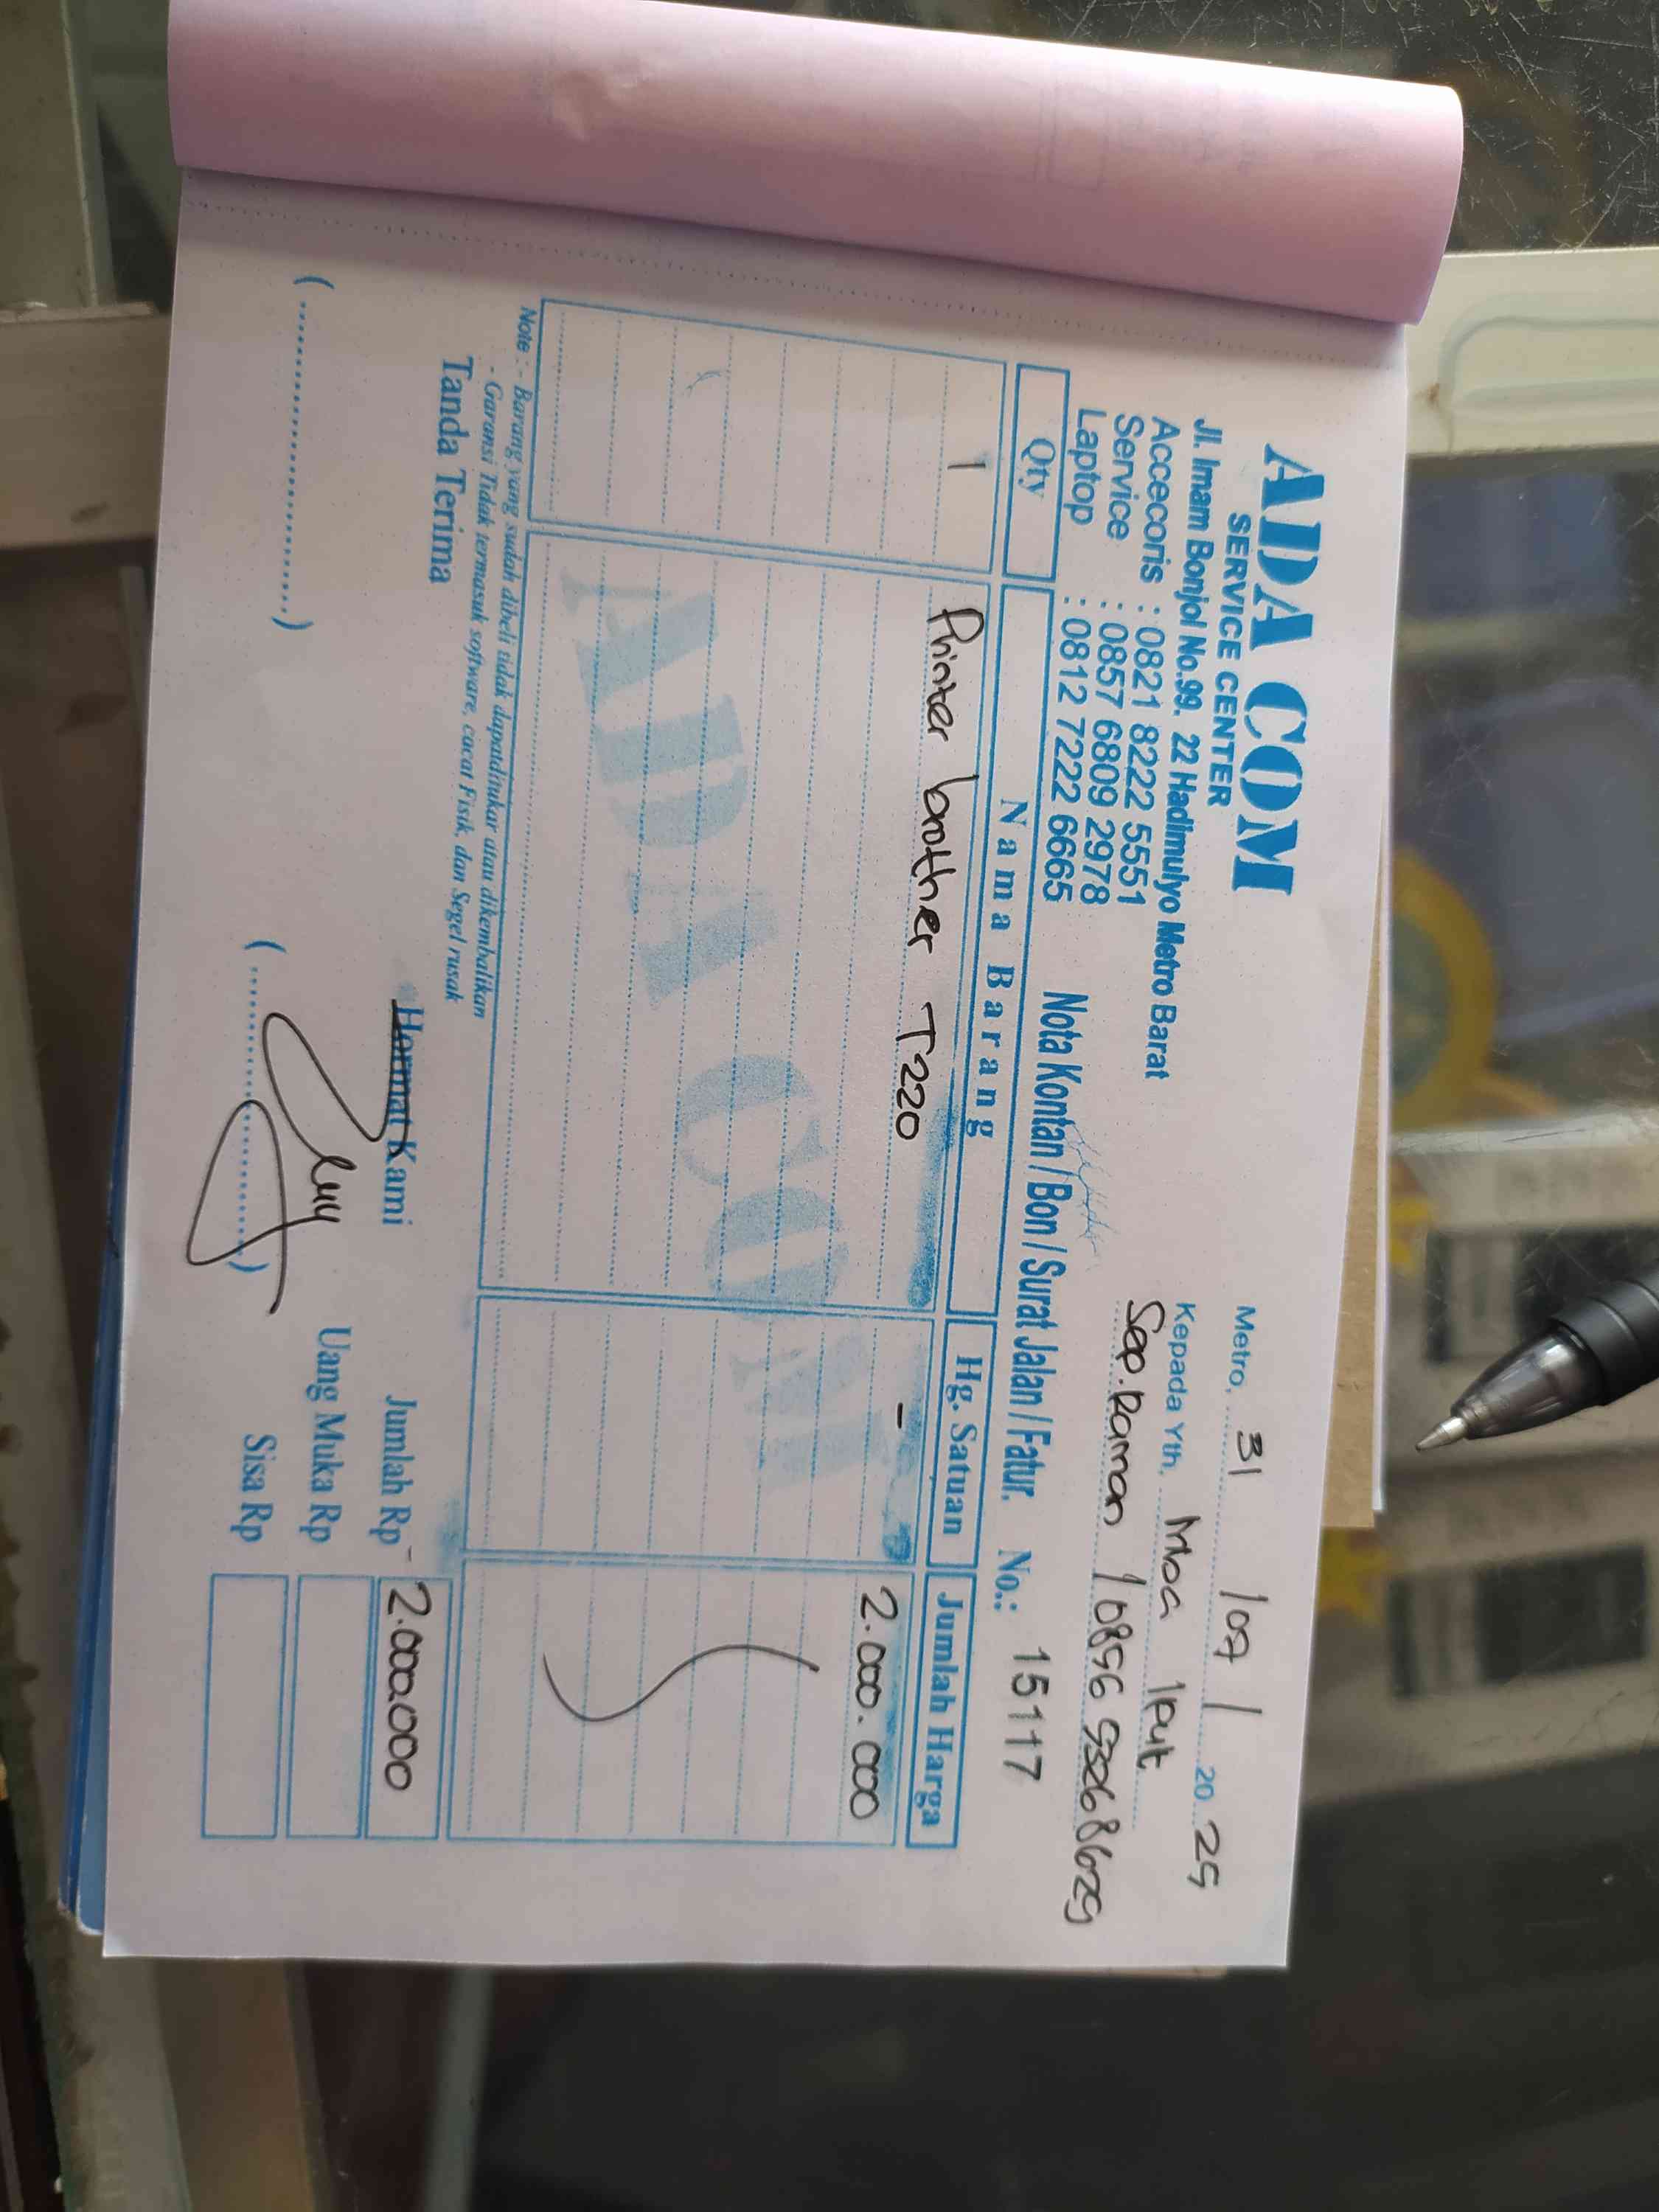 ADA COM
SERVICE CENTER
Jl. Imam Bonjol No.99. 22 Hadimulyo Metro Barat
Accecoris : 0821 8222 5551
Service : 0857 6809 2978
Laptop : 0812 7222 6665
Metro, 31 / 07 / 20 25
Kepada Yth, Moa Iput
Sep. Raman /
Nota Kontan / Bon / Surat Jalan / Fatur. No.: 15117
Qty Nama Barang Hg. Satuan Jumlah Harga
1 Printer brother T220 - 2.000.000
ADA COM
Note : - Barang yang sudah dibeli tidak dapat ditukar atau dikembalikan
- Garansi Tidak termasuk software, cacat Fisik, dan Segel rusak
Tanda Terima Hormat Kami Jumlah Rp 2.000.000
Uang Muka Rp
Sisa Rp
(..............................) (..............................)